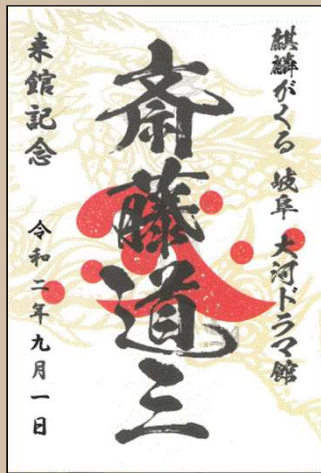 麒麟がくる 岐阜 大河ドラマ館
斎藤道三
来館記念
令和二年九月一日